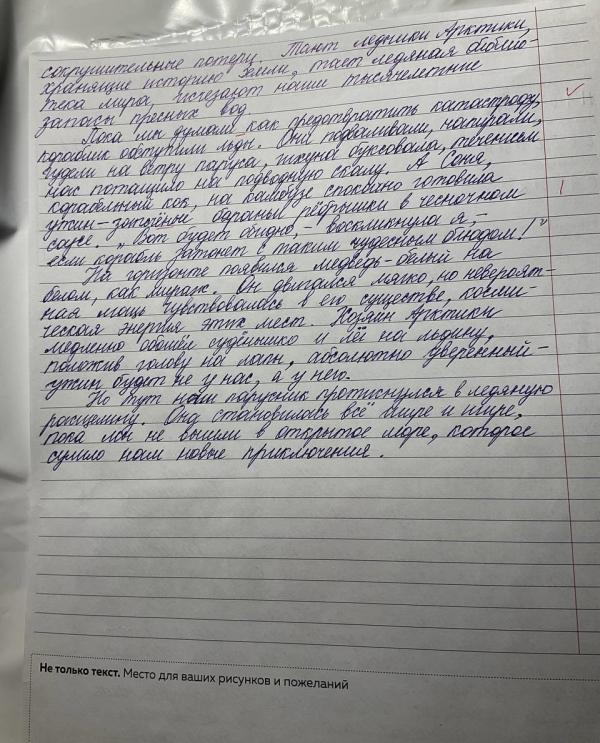 сокрушительные потери. Тают ледники Арктики,
хранящие историю Земли, тает ледяная библио-
тека мира, исчезают наши тысячелетние
запасы пресных вод
Пока мы думали как предотвратить катастрофу,
кораблик обступили льды. Они подваливали, напирали,
гудели на ветру паруса, шхуна буксовала, течением
нас потащило на подводную скалу. А Соня,
корабельный кок, на камбузе спокойно готовила
ужин - запечённые бараньи рёбрышки в чесночном
соусе. „Вот будет обидно, - воскликнула я, -
если корабль затонет с таким чудесным блюдом!"
На горизонте появился медведь - белый на
белом, как мираж. Он двигался мягко, но невероят-
ная мощь чувствовалась в его существе, косми-
ческая энергия этих мест. Хозяин Арктики
медленно обошёл судёнышко и лёг на льдину,
положив голову на лапы, абсолютно уверенный -
ужин будет не у нас, а у него.
Но тут наш парусник протиснулся в ледяную
расщелину. Она становилась всё шире и шире,
пока мы не вышли в открытое море, которое
сулило нам новые приключения.
Не только текст. Место для ваших рисунков и пожеланий